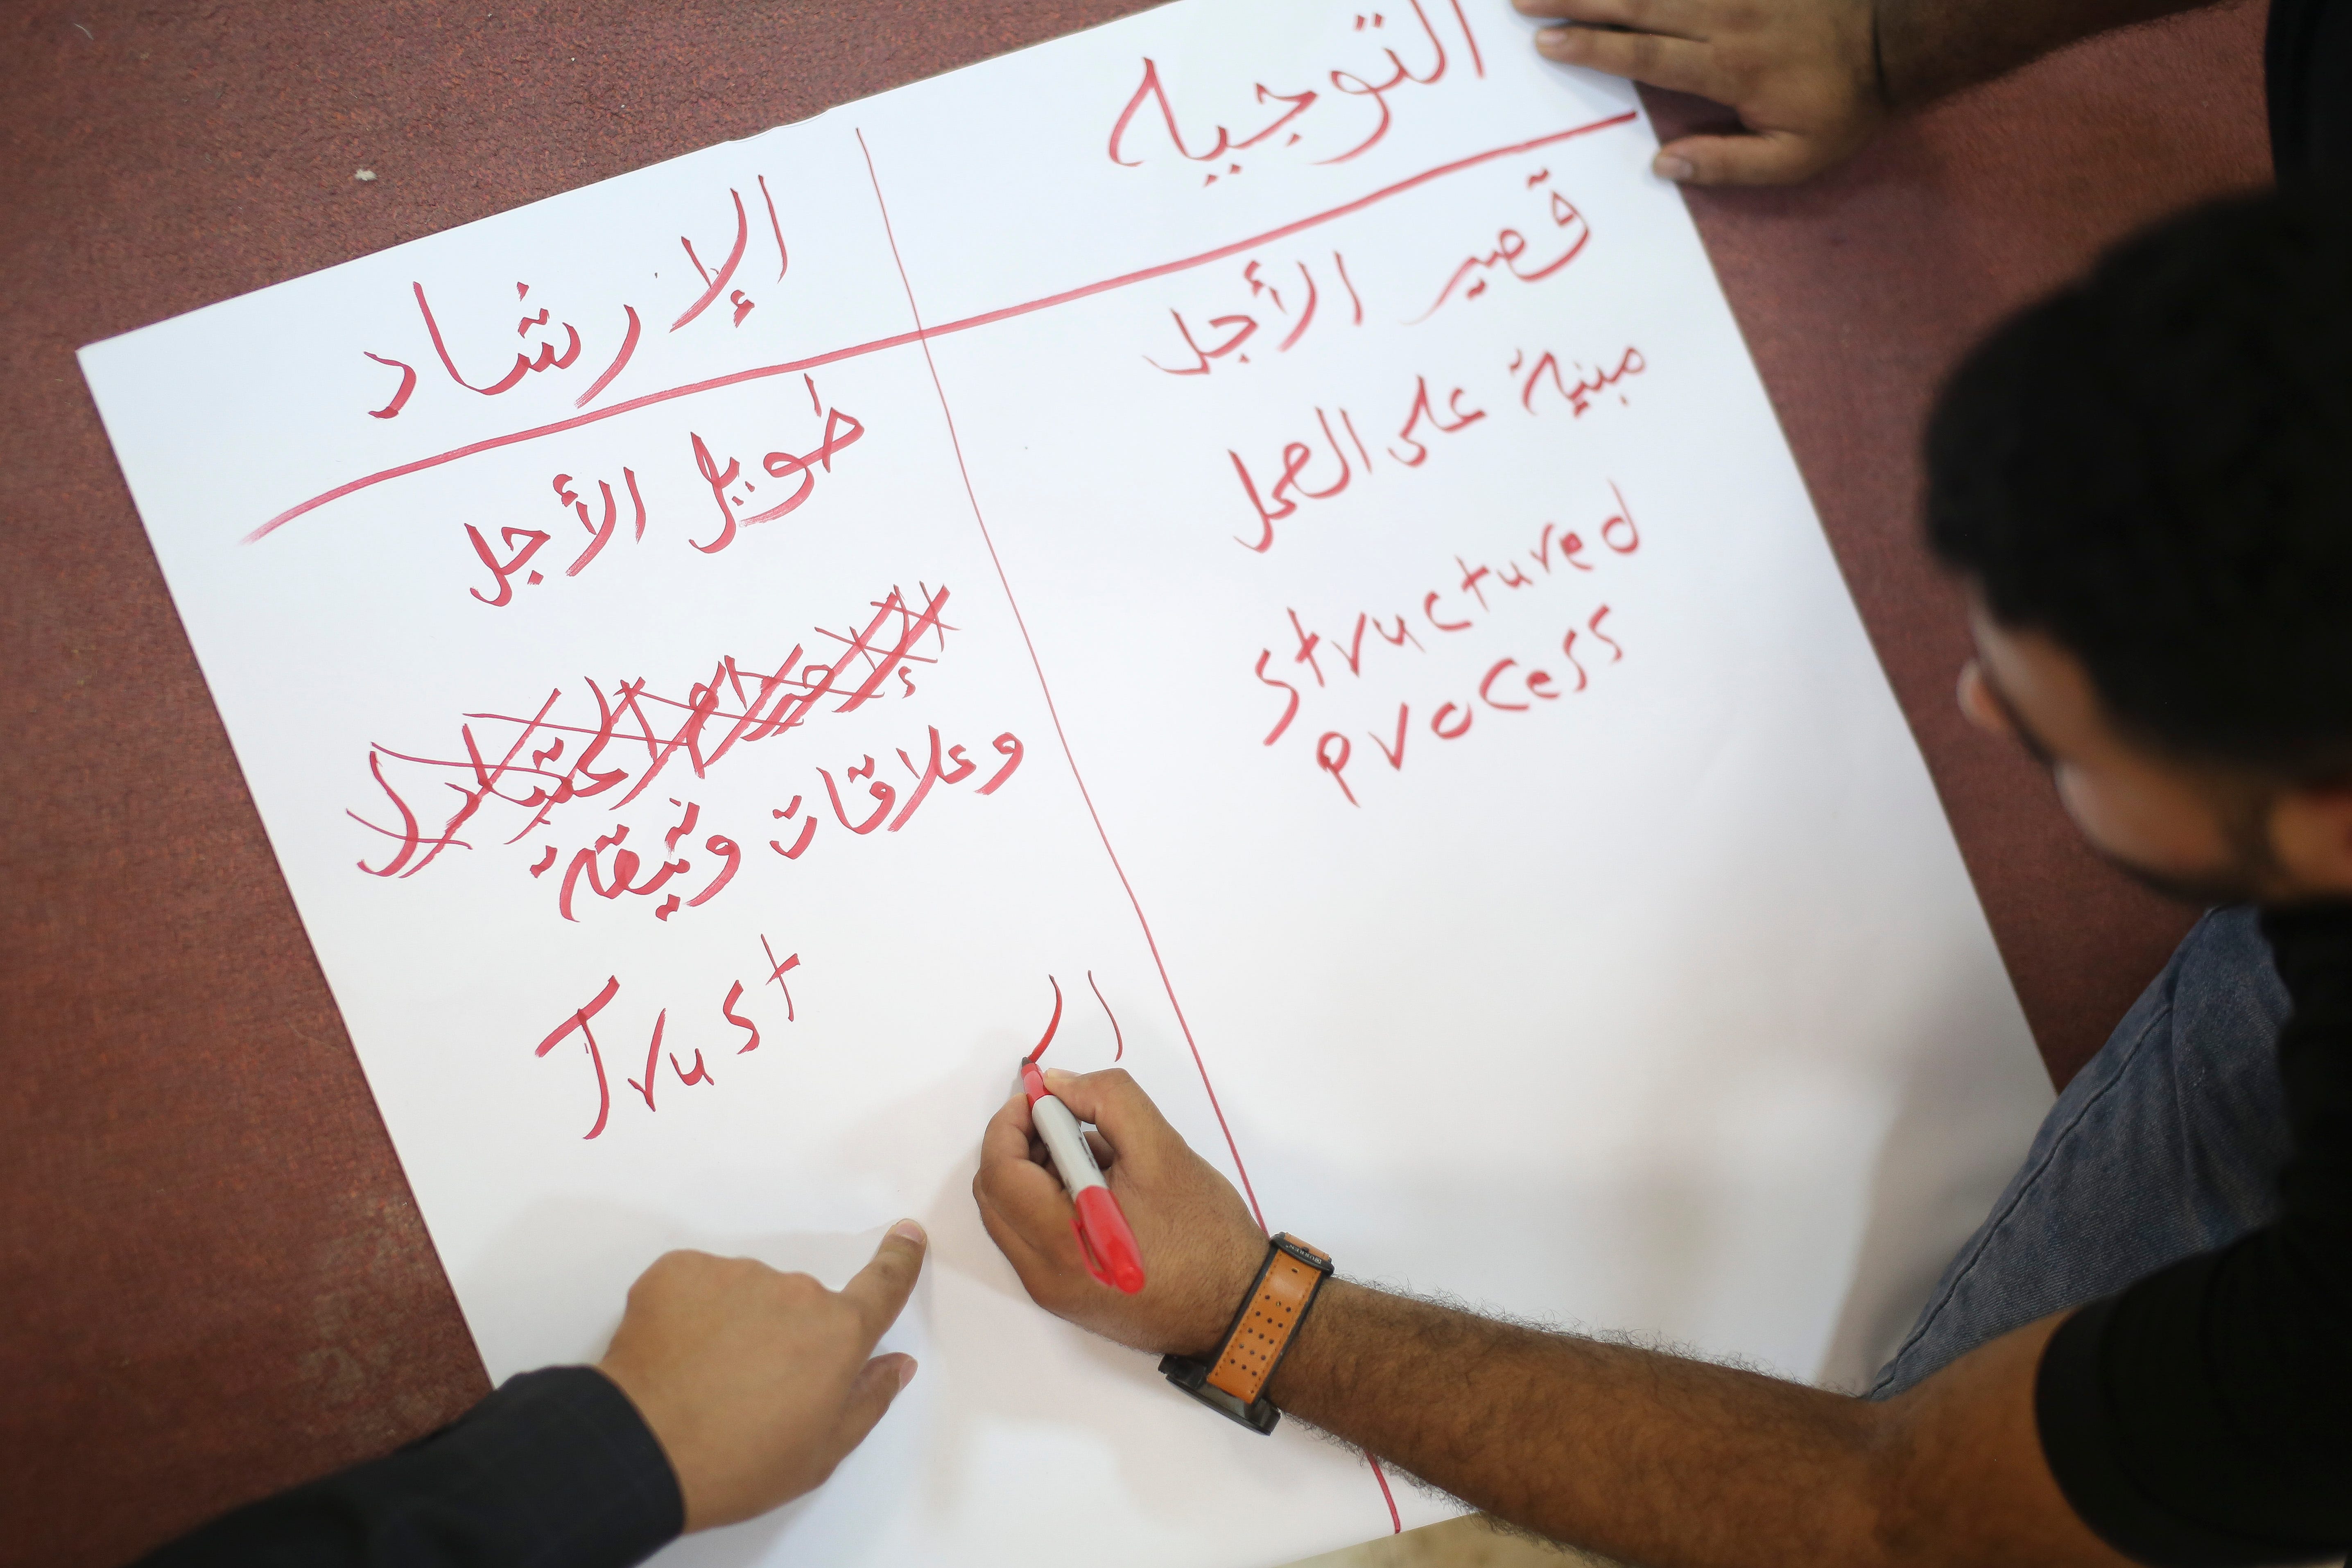 التوجيه
قصير الأجل
مبنية على العمل
structured
process
الإرشاد
طويل الأجل
وعلاقات وثيقة
Trust
ال